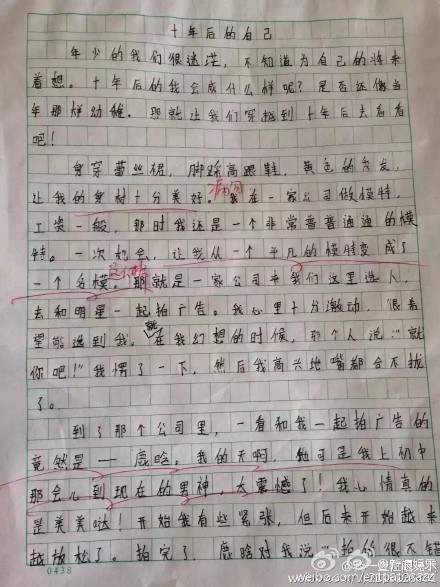 十年后的自己
年少的我们很迷茫，不知道为自己的将来
着想。十年后的我会成什么样呢？是否还像当
年那样幼稚。那就让我们穿越到十年后去看看
吧！
身穿蕾丝裙，脚踩高跟鞋，黄色的头发，
让我的身材十分美好。我在一家公司做模特，
工资一般，那时我还是一个非常普普通通的模
特。一次机会，让我从一个平凡的模特变成了
一个名模。那就是一家公司来我们这里选人，
去和明星一起拍广告。我心里十分激动，很希
望能选到我。就在我幻想的时候，那个人说：“就
你吧！”我愣了一下，然后我高兴地嘴都合不拢
了。
到了那个公司里，一看和我一起拍广告的
竟然是——鹿晗。我的天啊，他可是我上初中
那会儿到现在的男神，太震憾了！我心情真的
是美美哒！开始我有些紧张，但后来开始越来
越放松了。拍完了，鹿晗对我说“拍的很不错
0438